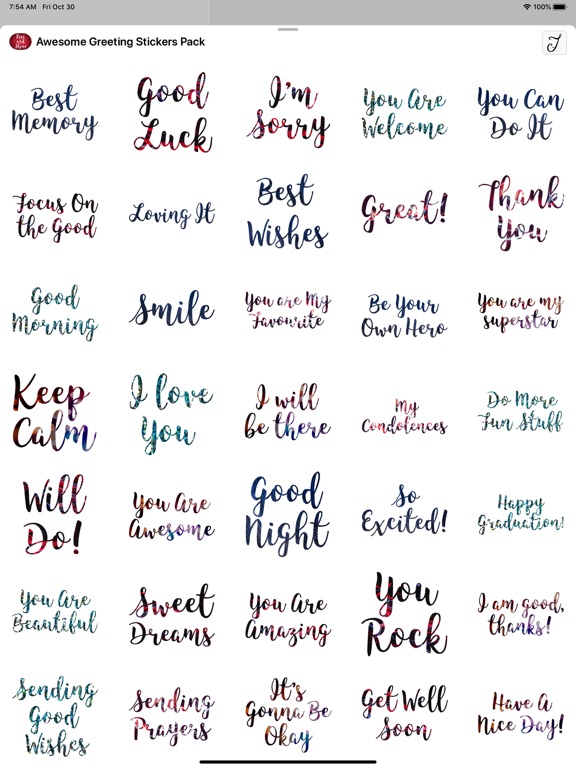 7:54 AM Fri Oct 30 100%
Rise and Shine
Awesome Greeting Stickers Pack
Best
Memory
Good
Luck
I'm
Sorry
You Are
Welcome
You Can
Do It
Focus On
the Good
Loving It
Best
Wishes
Great!
Thank
You
Good
Morning
Smile
You are My
Favourite
Be Your
Own Hero
You are my
superstar
Keep
Calm
I love
You
I will
be there
My
Condolences
Do More
Fun Stuff
Will
Do!
You Are
Awesome
Good
Night
So
Excited!
Happy
Graduation!
You Are
Beautiful
Sweet
Dreams
You Are
Amazing
You
Rock
I am good,
thanks!
Sending
Good
Wishes
Sending
Prayers
It's
Gonna Be
Okay
Get Well
Soon
Have A
Nice Day!